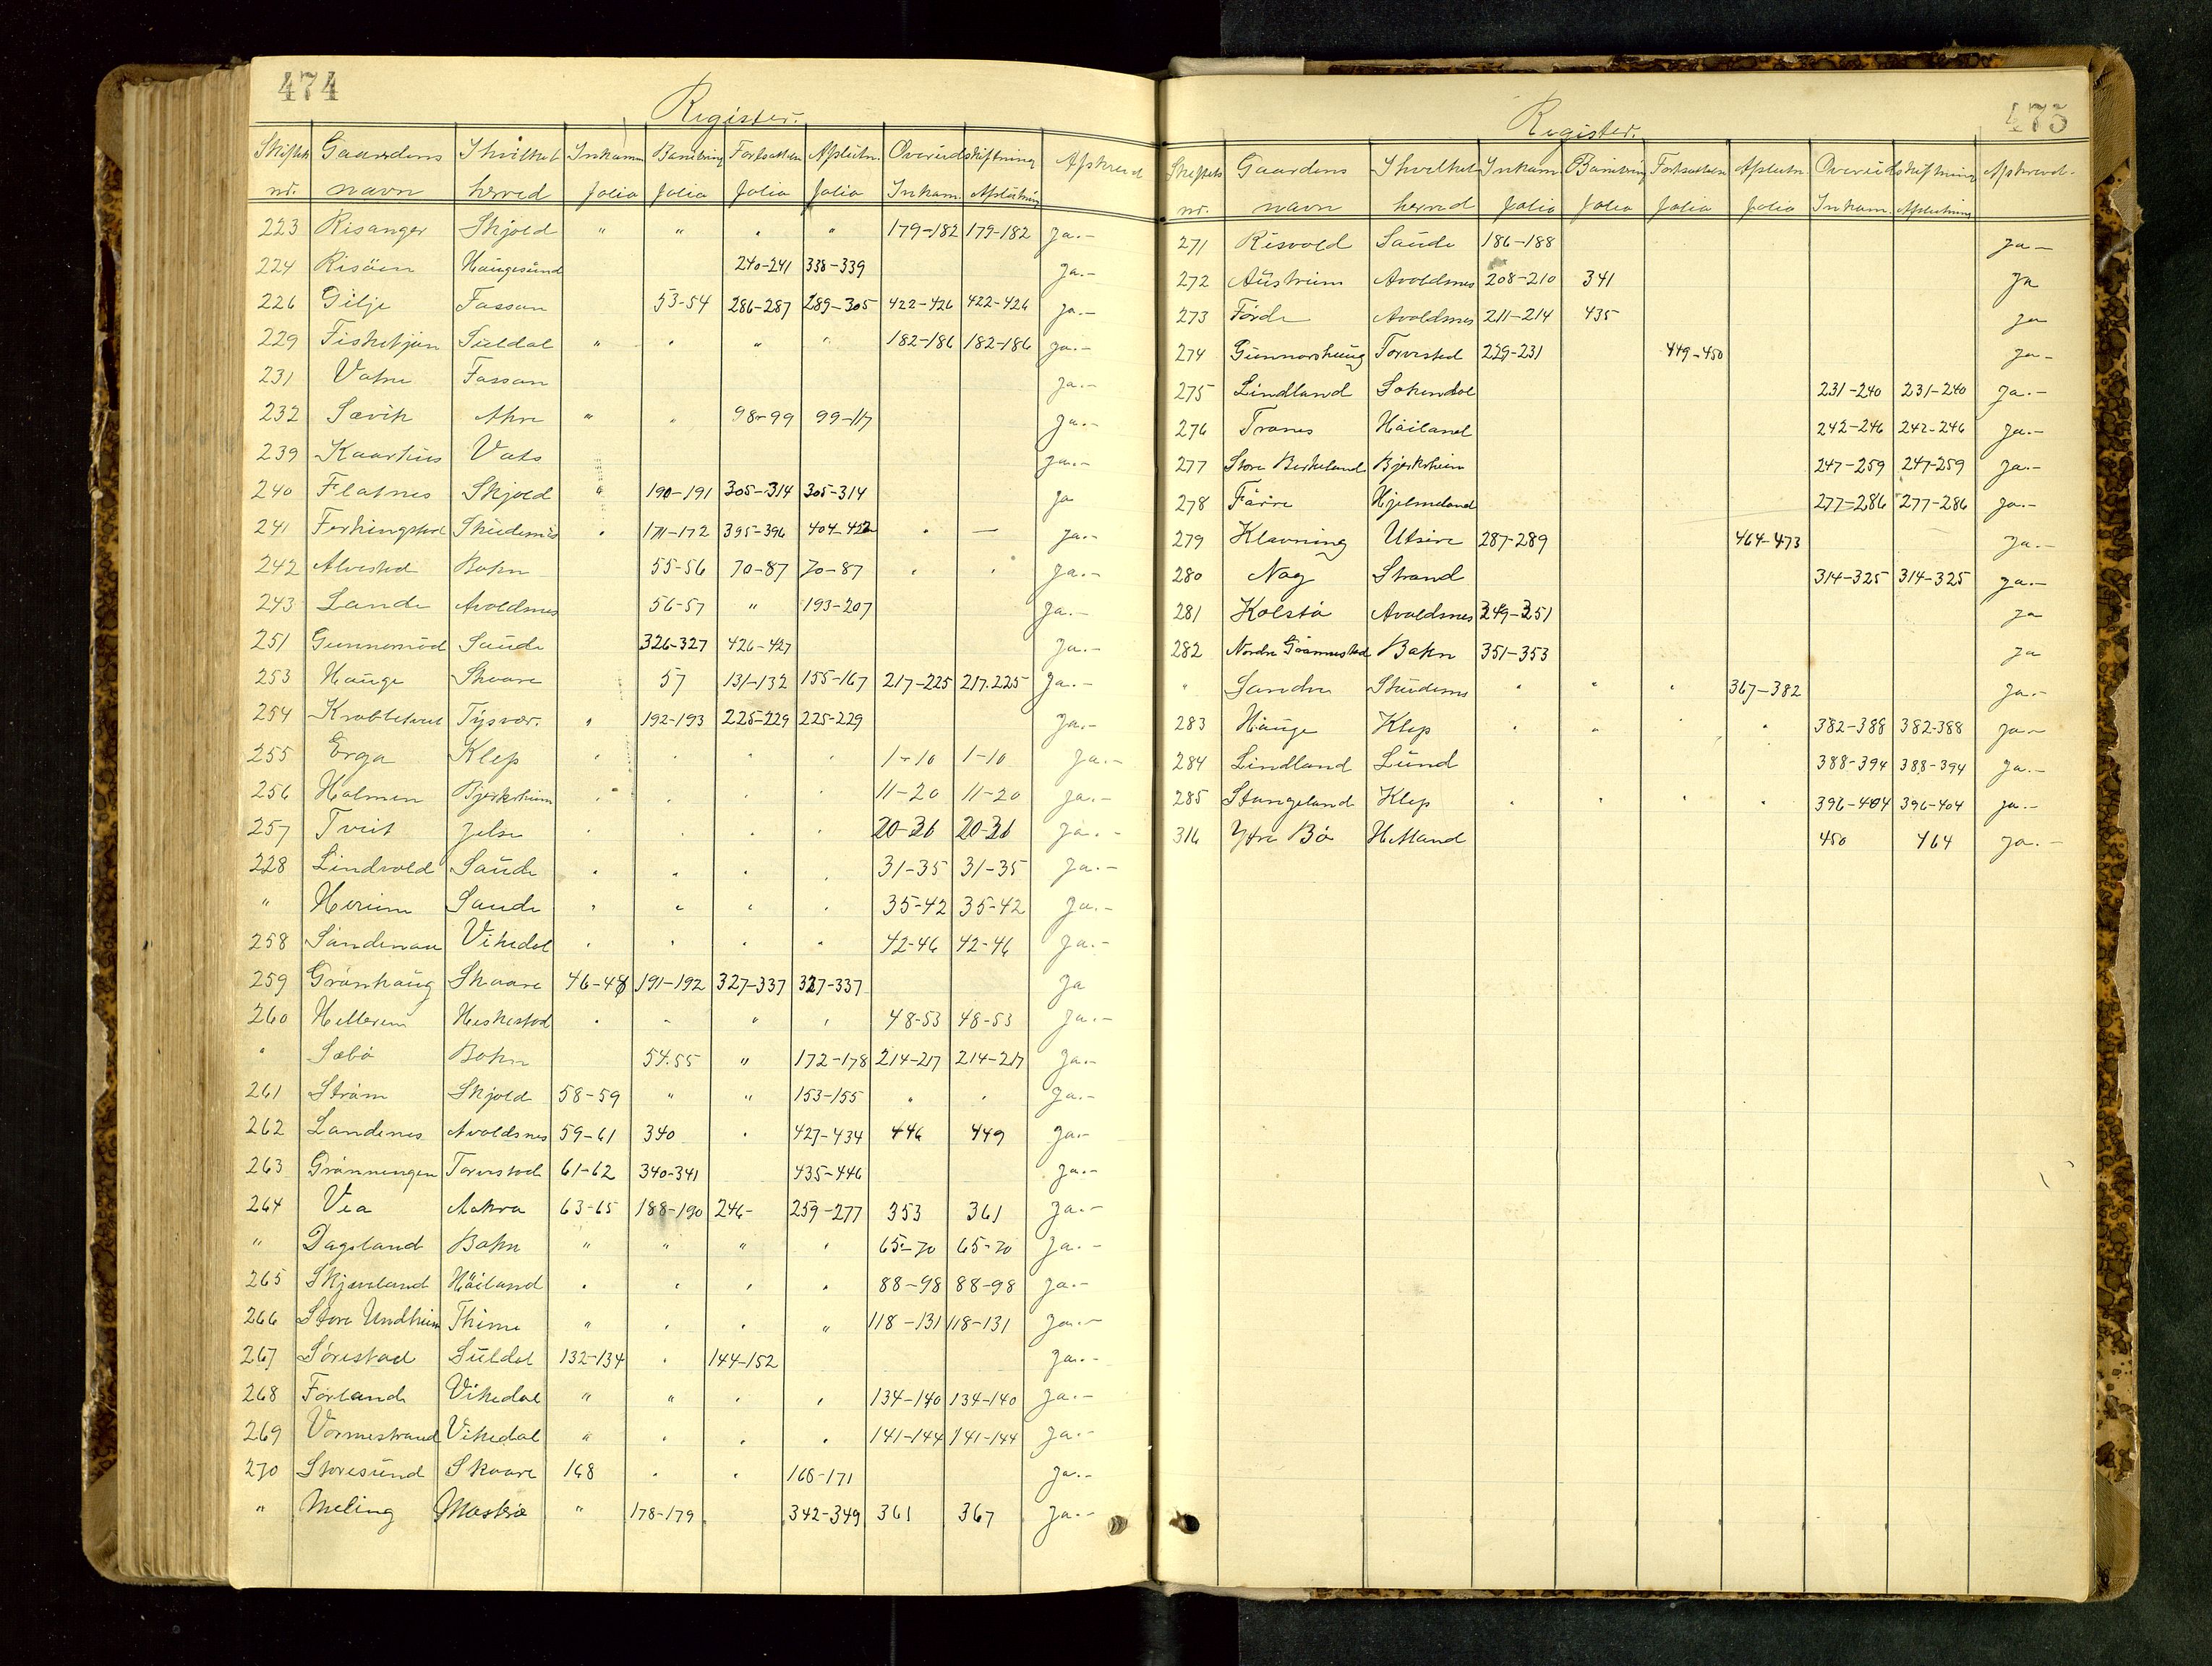 474
Register.
Skiftets Gaardens I hvilket Inkam. Bonitering Fortsættelse Afslutn. Overudskiftning Afskrevet
nr. navn herred folio folio folio folio Inkam. Afslutning
223 Risanger Skjold " " " " 179-182 179-182 ja.-
224 Risöen Haugesund 240-241 338-339 ja.-
226 Gilje Fossan 53-54 286-287 289-305 422-426 422-426 ja.-
229 Fisketjön Suldal " " " " 182-186 182-186 ja.-
231 Vatne Fossan ja.-
232 Sævik Akre " " 98-99 99-117 ja.-
239 Kaarhus Vats ja.-
240 Flatnes Skjold " 190-191 305-314 305-314 ja
241 Ferkingstad Skudenes " 171-172 395-396 404-422 " — ja.-
242 Alvestad Bokn 55-56 70-87 70-87 " " ja.-
243 Lande Avoldsnes 56-57 " 193-207 ja.-
251 Gunnernöd Saude 326-327 426-427 ja.-
253 Hauge Skaare 57 131-132 155-167 217-225 217.225 ja.-
254 Krabbetveit Tysvær. " 192-193 225-229 225-229 ja.-
255 Erga Klep " " " " 1-10 1-10 ja.-
256 Holmen Bjerkrheim " " " " 11-20 11-20 ja.-
257 Tveit Jelse " " " " 20-26 20-26 ja.-
228 Lindvold Saude " " " " 31-35 31-35 ja.-
" Herum Saude " " " " 35-42 35-42 ja.-
258 Søndenaa Vikedal " " " " 42-46 42-46 ja.-
259 Grönhaug Skaare 46-48 191-192 327-337 327-337 ja
260 Helleren Heskestad " " " " 48-53 48-53 ja.-
" Sæbö Bokn 54.55 " 172-178 214-217 214-217 ja.-
261 Ström Skjold 58-59 " " 153-155 " " ja.-
262 Landenes Avoldsnes 59-61 340 " 427-434 446 449 ja.-
263 Grönningen Torvestad 61-62 340-341 435-446 ja.-
264 Vea Aakra 63-65 188-190 246- 259-277 353 361 ja.-
" Dagsland Bokn " " " " 65-70 65-70 ja.-
265 Skjæveland Höiland " " " " 88-98 88-98 ja.-
266 Store Undheim Thime " " " " 118-131 118-131 ja.-
267 Sörestad Suldal 132-134 " 144-152 ja.-
268 Förlande Vikedal " " " " 134-140 134-140 ja.-
269 Vormestrand Vikedal " " " " 141-144 141-144 ja.-
270 Storesund Skaare 168 " " 168-171 ja.-
" Meling Mosterö " 178-179 342-349 361 367 ja.-
475
Register.
Skiftets Gaardens I hvilket Inkam. Bonitering Fortsættelse Afslutn. Overudskiftning Afskrevet.
nr. navn herred folio folio folio folio Inkam. Afslutning
271 Risvold Saude 186-188 ja-
272 Austreim Avoldsnes 208-210 341 ja
273 Förde Avoldsnes 211-214 435 ja
274 Gunnarshaug Torvestad 229-231 449-450 ja-
275 Lindland Sokendal 231-240 231-240 ja.-
276 Tranes Höiland 242-246 242-246 ja.-
277 Store Birkeland Bjerkrheim 247-259 247-259 ja.-
278 Färre Hjelmeland 277-286 277-286 ja.-
279 Klævning Utsire 287-289 464-473 ja.-
280 Nag Strand 314-325 314-325 ja.-
281 Kolstö Avaldsnes 349-351 ja
282 Nordre Grønnestad Bokn 351-353 ja
" Sandve Skudenes " " " 367-382 ja.-
283 Hauge Klep " " " " 382-388 382-388 ja-
284 Lindland Lund 388-394 388-394 ja.-
285 Stangeland Klep " " " " 396-404 396-404 ja.-
316 Ytre Bö Hetland 450 464 ja.-